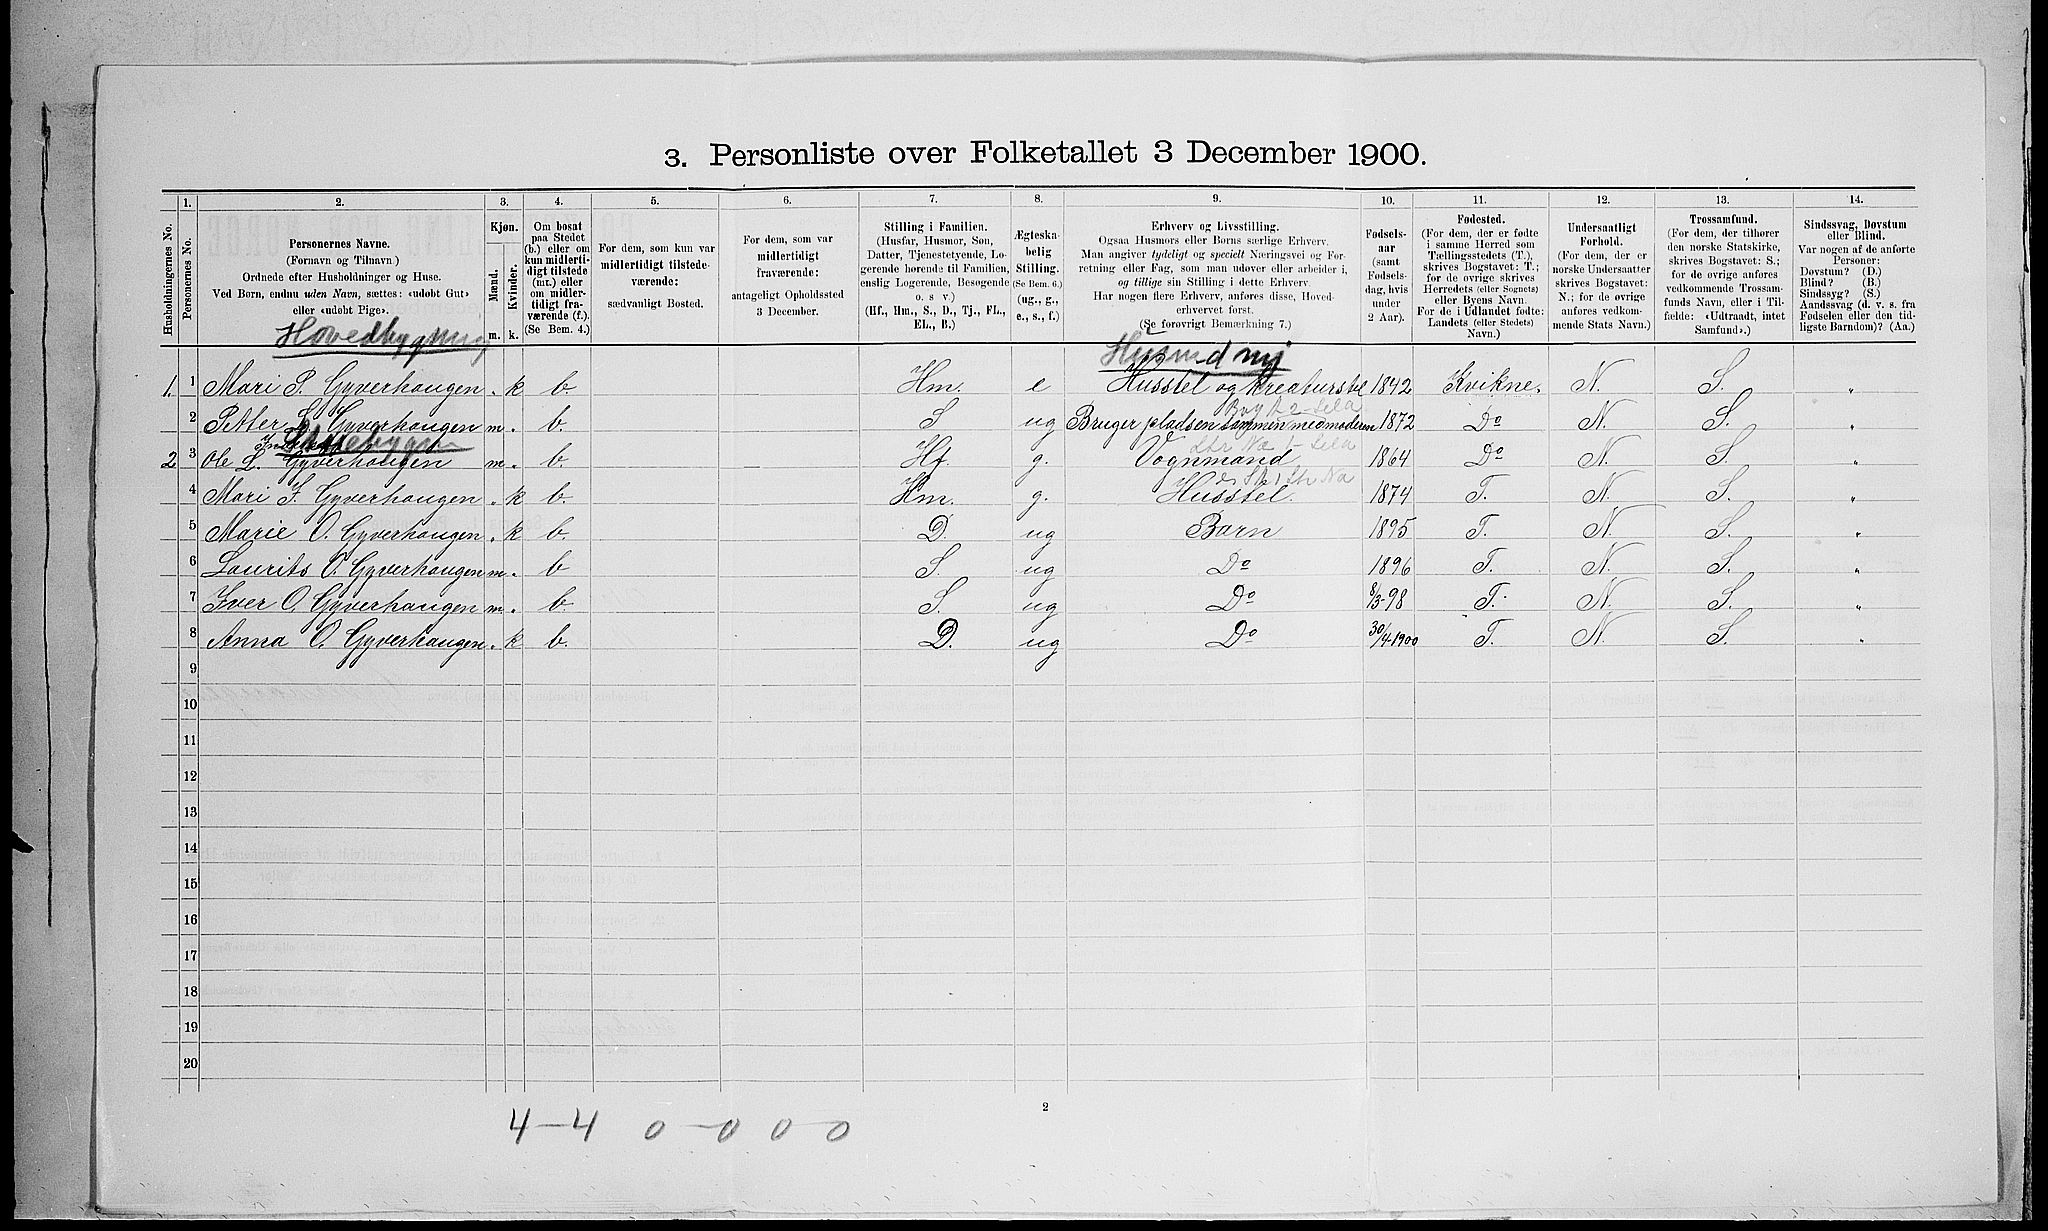 3. Personliste over Folketallet 3 December 1900.
1. 2. 3. 4. 5. 6. 7. 8. 9. 10. 11. 12. 13. 14.
Husholdningernes No.
Personernes No.
Personernes Navne.
(Fornavn og Tilnavn)
Ordnede efter Husholdninger og Huse.
Ved Børn, endnu uden Navn, sættes: «udøbt Gut»
eller «udøbt Pige».
Kjøn.
Mænd.
Kvinder.
m. k.
Om bosat
paa Stedet
(b.) eller om
kun midlerti-
digt tilstede
(mt.) eller
om midler-
tidigt fra-
værende (f.).
(Se Bem. 4.)
For dem, som kun var
midlertidigt tilstede-
værende:
sædvanligt Bosted.
For dem, som var
midlertidigt
fraværende:
antageligt Opholdssted
3 December.
Stilling i Familien.
(Husfar, Husmor, Søn,
Datter, Tjenestetyende, Lo-
gerende hørende til Familien,
enslig Logerende, Besøgende
o. s v.)
(Hf., Hm., S., D., Tj., FL.,
EL., B.)
Ægteska-
belig
Stilling.
(Se Bem. 6.)
(ug., g.,
e., s., f.)
Erhverv og Livsstilling.
Ogsaa Husmors eller Børns særlige Erhverv.
Man angiver tydeligt og specielt Næringsvei og For-
retning eller Fag, som man udøver eller arbeider i,
og tillige sin Stilling i dette Erhverv.
Har nogen flere Erhverv, anføres disse, Hoved-
erhvervet først.
(Se forøvrigt Bemærkning 7.)
Fødsels-
aar
(samt
Fødsels-
dag, hvis
under
2 Aar).
Fødested.
(For dem, der er fødte
i samme Herred som
Tællingsstedets (T.),
skrives Bogstavet: T.;
for de øvrige skrives
Herredets (eller Sognets)
eller Byens Navn.
For de i Udlandet fødte:
Landets (eller Stedets)
Navn.)
Undersaatligt
Forhold.
(For dem, der er
norske Undersaatter
skrives Bogstavet:
N.; for de øvrige
anføres vedkom-
mende Stats Navn.)
Trossamfund.
(For dem, der tilhører
den norske Statskirke,
skrives Bogstavet: S.;
for de øvrige anføres
vedkommende Trossam-
funds Navn, eller i Til-
fælde: «Udtraadt, intet
Samfund».)
Sindssvag, Døvstum
eller Blind.
Var nogen af de anførte
Personer:
Døvstum? (D.)
Blind? (B.)
Sindssyg? (S.)
Aandssvag (d. v. s. fra
Fødselen eller den tid-
ligste Barndom)? (Aa.)
Hovedbygning
1. 1 Mari P. Gyverhaugen . k b. Hm. e Husstel og Kreaturstel 1842 Kvikne. N. S. "
2 Petter L. Gyverhaugen m . b. S ug Bruger pladsen sammen med moderen 1872 Do N. S. "
2 3 Ole L. Gyverhaugen m . b. Hf. g. Vognmand 1864 Do N. S. "
4 Mari F. Gyverhaugen . k b. Hm. g. Husstel. 1874 T. N. S. "
5 Marie O. Gyverhaugen . k b. D. ug Barn 1895 T. N. S. "
6 Laurits O. Gyverhaugen m . b S. ug Do 1896 T. N. S. "
7 Iver O. Gyverhaugen m . b. S. ug Do 8/3-98 T. N. S. "
8 Anna O. Gyverhaugen . k b. D. ug Do 30/4-1900 T. N. S. "
9
10
11
12
13
14
15
16
17
18
19
20
2
4-4 0-0 0 0